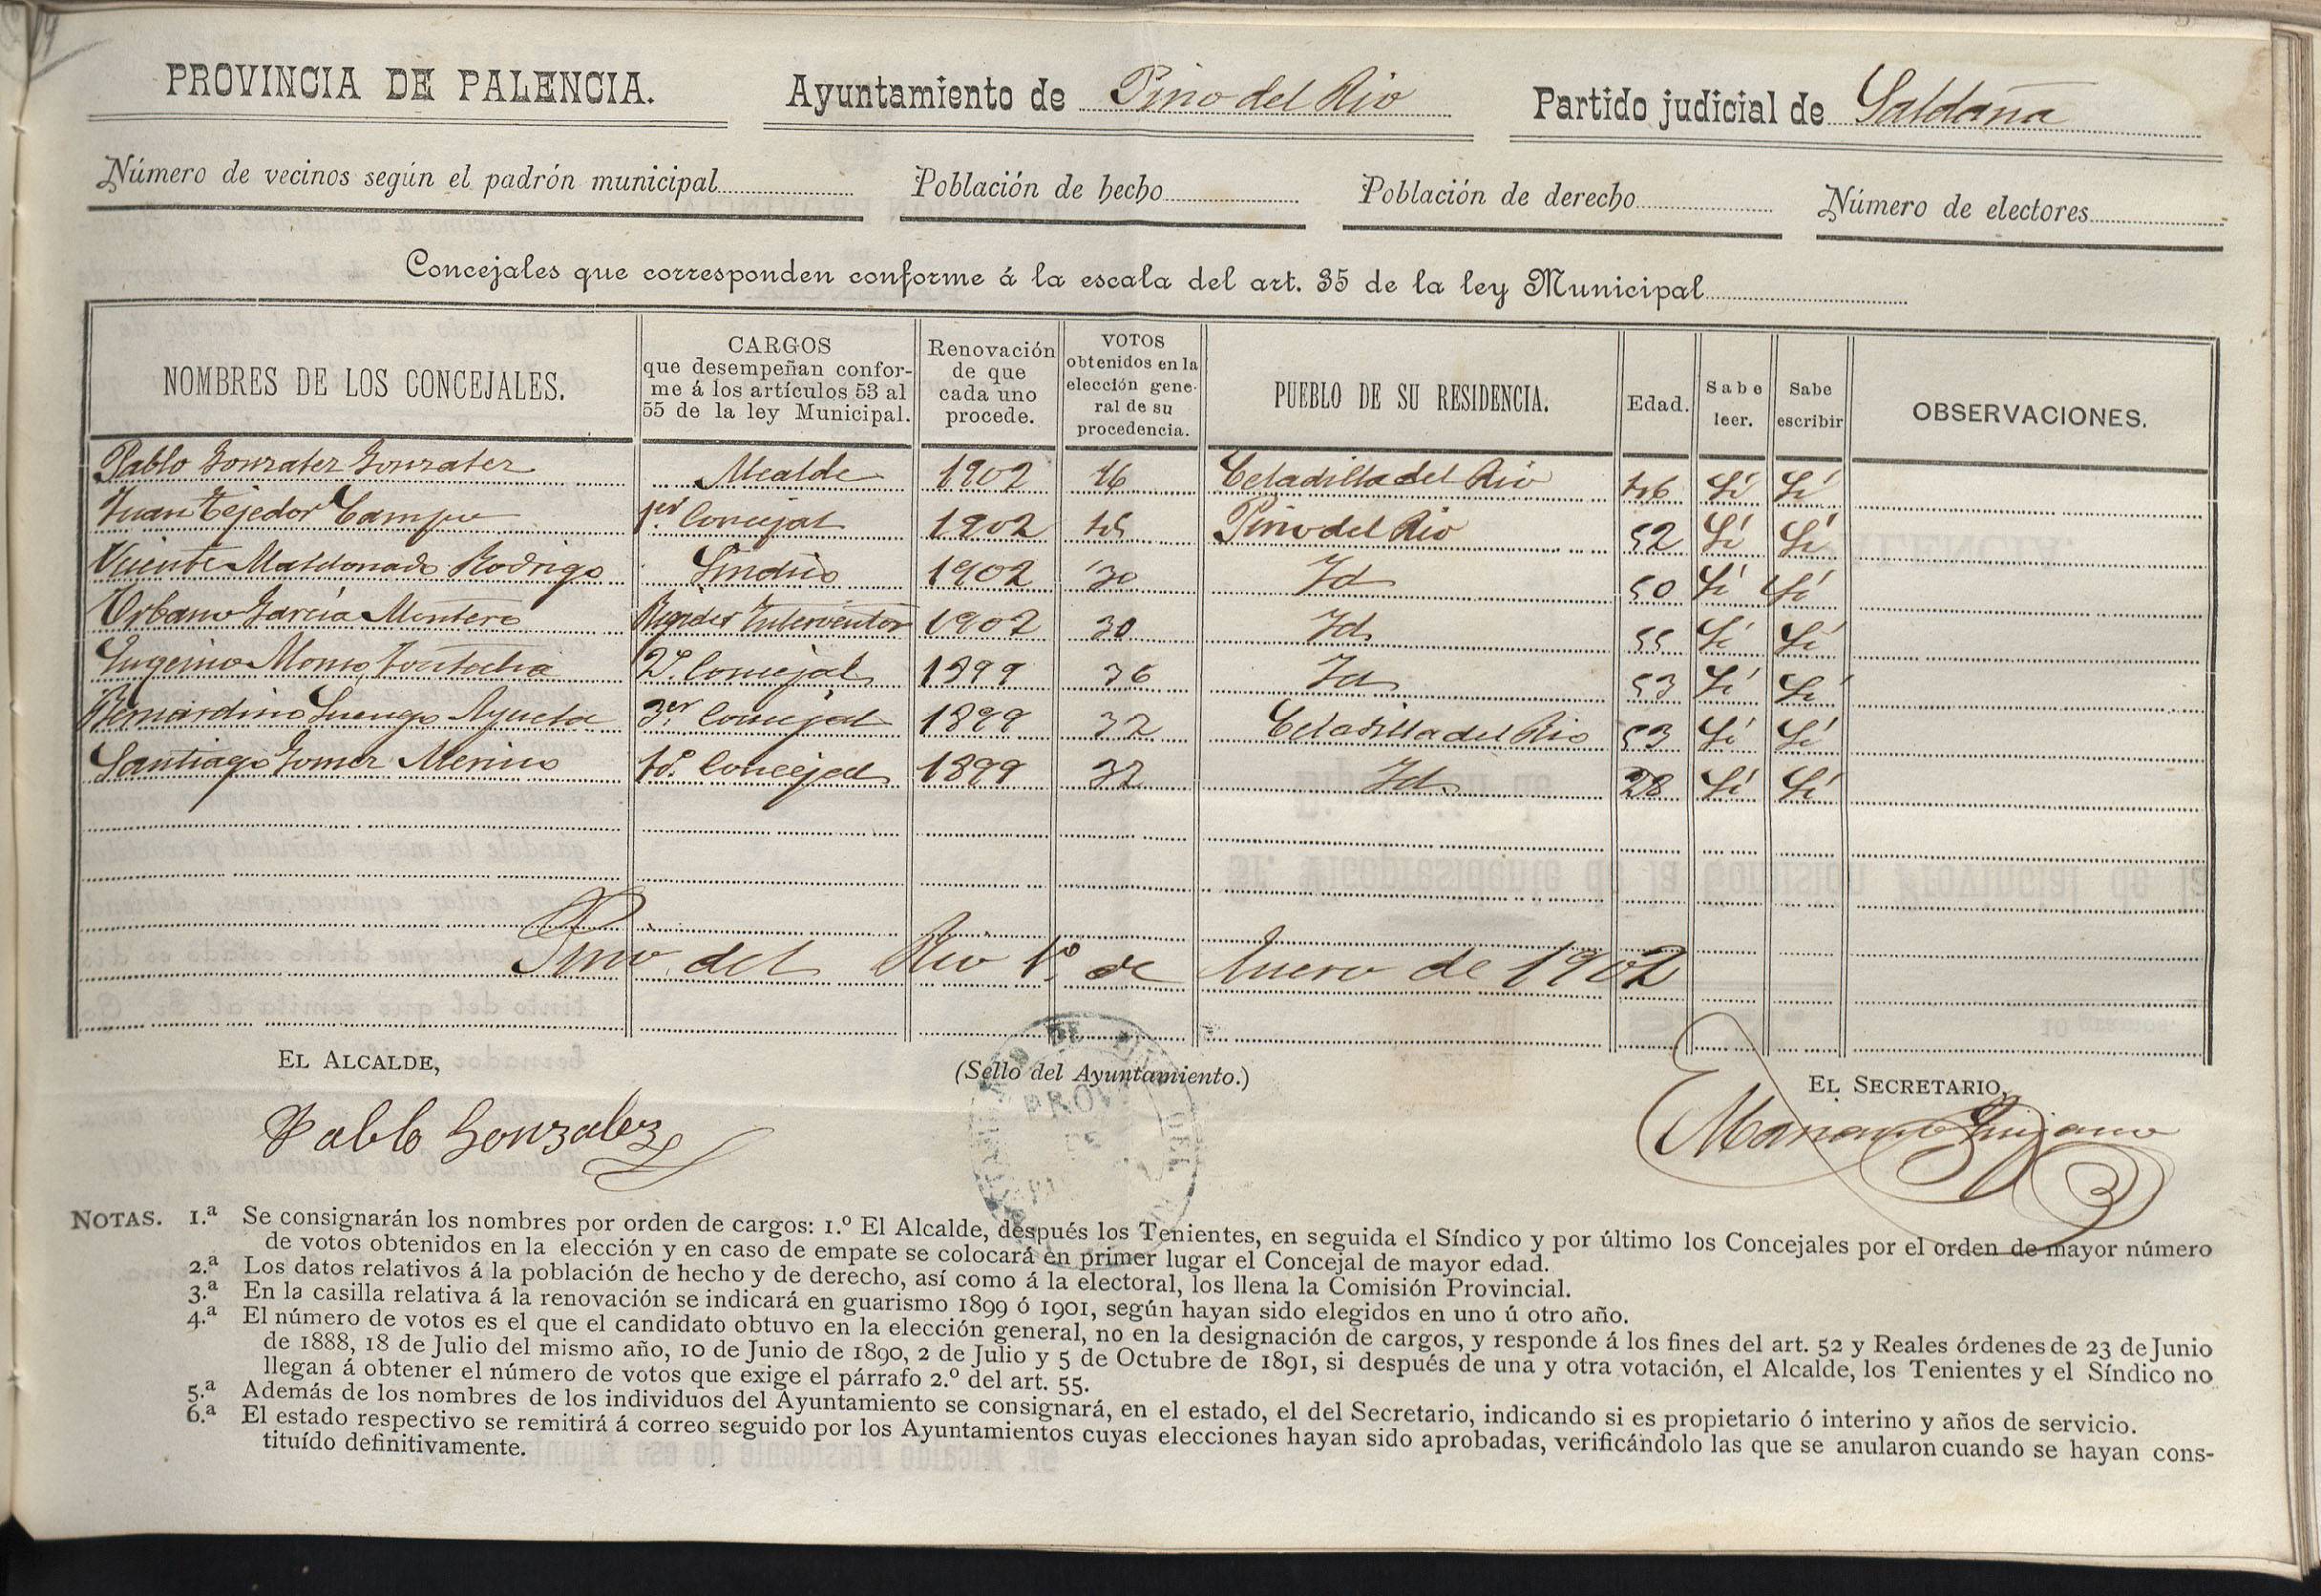 PROVINCIA DE PALENCIA. Ayuntamiento de Pino del Rio Partido judicial de Saldaña
Número de vecinos según el padrón municipal Población de hecho Población de derecho Número de electores
Concejales que corresponden conforme á la escala del art. 35 de la ley Municipal
NOMBRES DE LOS CONCEJALES.
CARGOS
que desempeñan confor-
me á los artículos 53 al
55 de la ley Municipal.
Renovación
de que
cada uno
procede.
VOTOS
obtenidos en la
elección gene-
ral de su
procedencia.
PUEBLO DE SU RESIDENCIA.
Edad.
Sabe
leer.
Sabe
escribir
OBSERVACIONES.
Pablo Gonzalez Gonzalez Alcalde 1902 Celadilla del Rio 46 Sí Sí
Juan Tejedor Campo 1er Concejal 1902 Pino del Rio 52 Sí Sí
Vicente Maldonado Rodrigo Sindico 1902 30 Id 50 Sí Sí
Urbano Garcia Montero Regidor Interventor 1902 30 Id 55 Sí Sí
Eugenio Monso 2º Concejal 1899 36 Id 53 Sí Sí
Bernardino Luengo 3er Concejal 1899 32 Celadilla del Rio 53 Sí Sí
Santiago Gomez Merino 4º Concejal 1899 32 Id 28 Sí Sí
Pino del Rio 1º de Enero de 1902
EL ALCALDE, (Sello del Ayuntamiento.) EL SECRETARIO,
Pablo Gonzalez Mariano Quijano
NOTAS. 1.ª Se consignarán los nombres por orden de cargos: 1.º El Alcalde, después los Tenientes, en seguida el Síndico y por último los Concejales por el orden de mayor número
de votos obtenidos en la elección y en caso de empate se colocará en primer lugar el Concejal de mayor edad.
2.ª Los datos relativos á la población de hecho y de derecho, así como á la electoral, los llena la Comisión Provincial.
3.ª En la casilla relativa á la renovación se indicará en guarismo 1899 ó 1901, según hayan sido elegidos en uno ú otro año.
4.ª El número de votos es el que el candidato obtuvo en la elección general, no en la designación de cargos, y responde á los fines del art. 52 y Reales órdenes de 23 de Junio
de 1888, 18 de Julio del mismo año, 10 de Junio de 1890, 2 de Julio y 5 de Octubre de 1891, si después de una y otra votación, el Alcalde, los Tenientes y el Síndico no
llegan á obtener el número de votos que exige el párrafo 2.º del art. 55.
5.ª Además de los nombres de los individuos del Ayuntamiento se consignará, en el estado, el del Secretario, indicando si es propietario ó interino y años de servicio.
6.ª El estado respectivo se remitirá á correo seguido por los Ayuntamientos cuyas elecciones hayan sido aprobadas, verificándolo las que se anularon cuando se hayan cons-
tituído definitivamente.